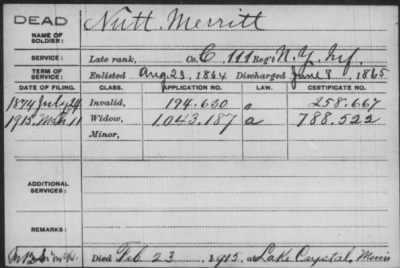 DEAD
Nutt. Merritt
NAME OF SOLDIER:
SERVICE: Late rank, Co. C. 111 Reg't N.Y. Inf.
TERM OF SERVICE: Enlisted Aug 23, 1864 Discharged June 8, 1865
DATE OF FILING. CLASS. APPLICATION NO. LAW. CERTIFICATE NO.
1874 July 24 Invalid, 194.630 258.667
1915. Mch 11 Widow, 1.043.187 a 788.522
Minor,
ADDITIONAL SERVICES:
REMARKS:
Died Feb 23, 1915, at Lake Crystal, Minn